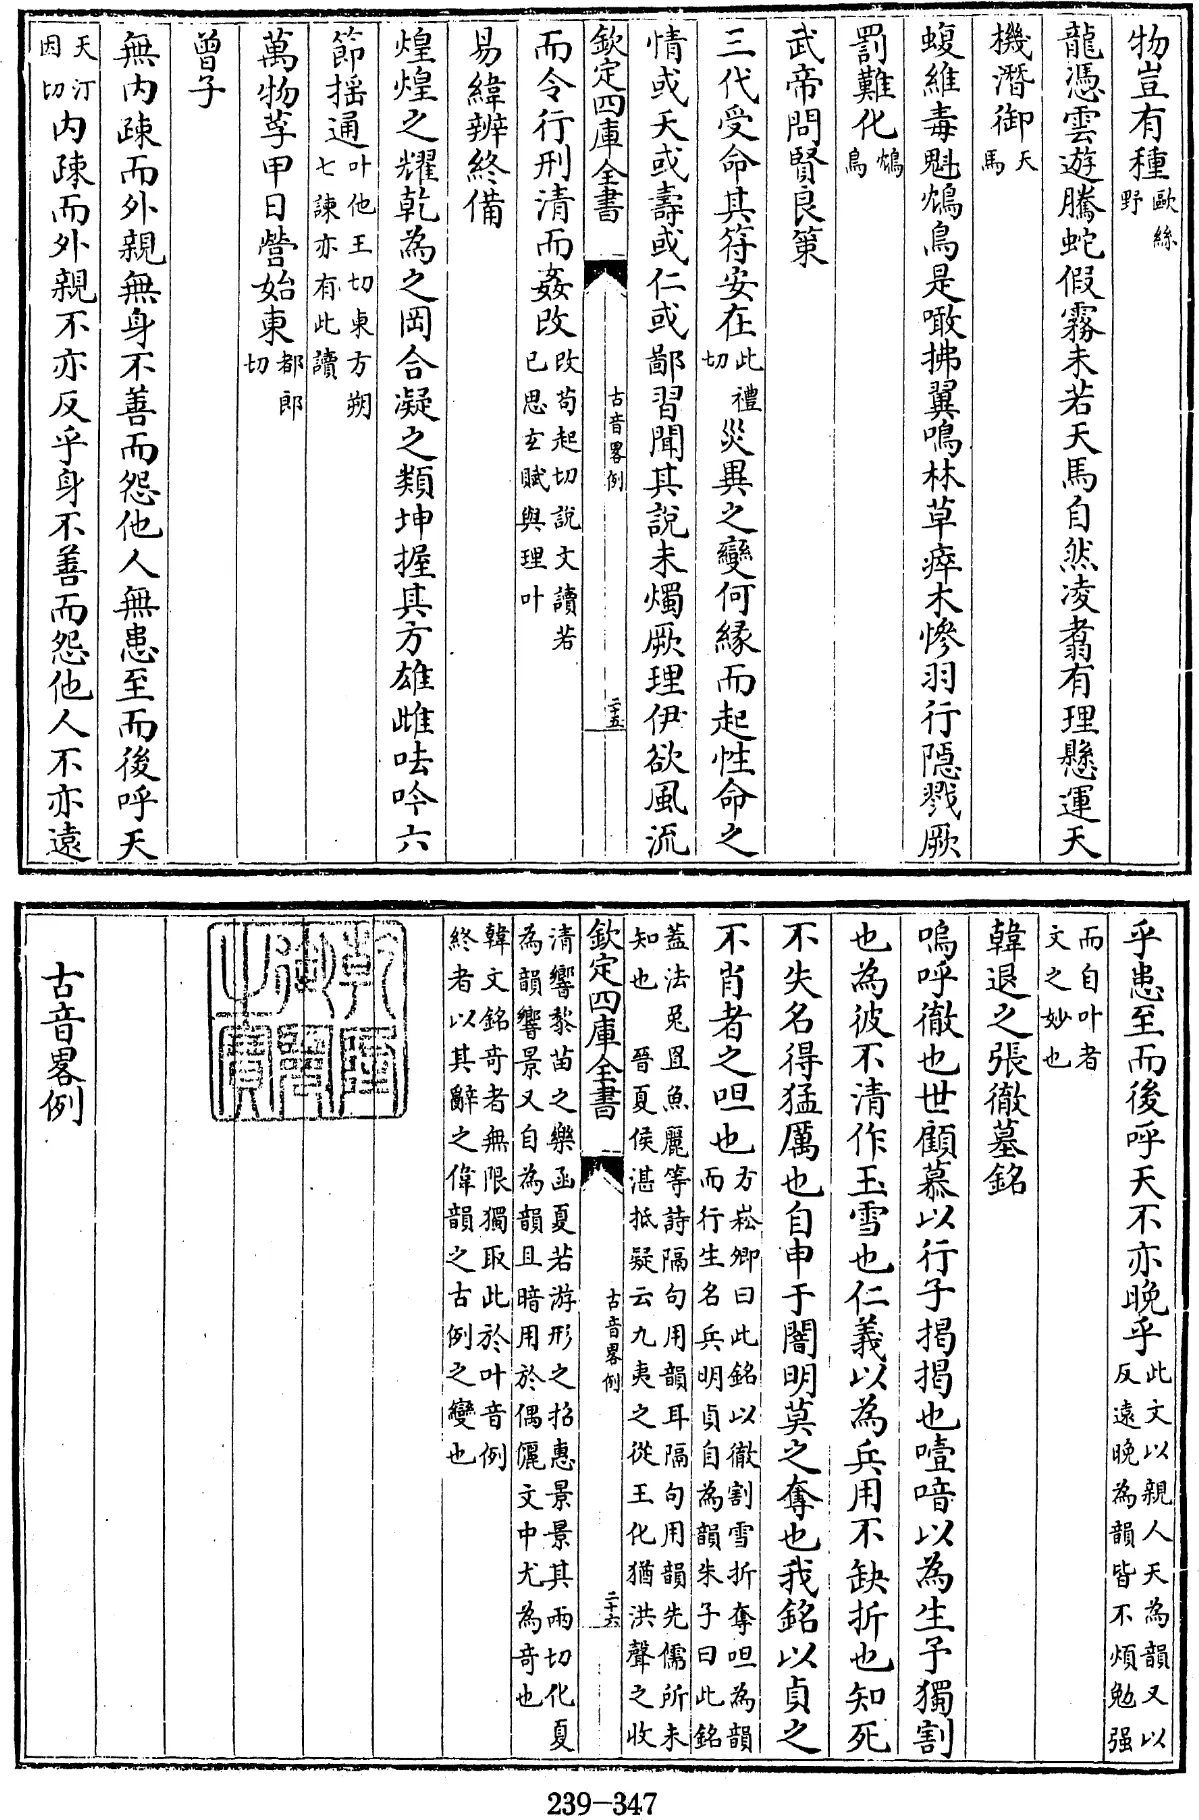 物豈有種歐絲野
龍憑雲遊騰蛇假霧未若天馬自然凌翥有理懸運天
機潛御天馬
蝮維毒魁鴆鳥是噉拂翼鳴林草瘁木慘羽行隱戮厥
罰難化鴆鳥
武帝問賢良策
三代受命其符安在此禮切災異之變何緣而起性命之
情或夭或壽或仁或鄙習聞其說未燭厥理伊欲風流
欽定四庫全書 古音畧例 二十五
而令行刑清而姦改改苟起切說文讀若已思玄賦與理叶
易緯辨終備
煌煌之耀乾為之岡合凝之類坤握其方雄雌呿吟六
節揺通叶他王切東方朔七諫亦有此讀
萬物孳甲日營始東都郎切
曾子
無内疎而外親無身不善而怨他人無患至而後呼天
天汀因切内疎而外親不亦反乎身不善而怨他人不亦遠
乎患至而後呼天不亦晚乎此文以親人天為韻又以反遠晚為韻皆不煩勉强
而自叶者文之妙也
韓退之張徹墓銘
嗚呼徹也世顧慕以行子揭揭也噎喑以為生子獨割
也為彼不清作玉雪也仁義以為兵用不缺折也知死
不失名得猛厲也自申于闇明莫之奪也我銘以貞之
不肖者之呾也方崧卿曰此銘以徹割雪折奪呾為韻而行生名兵明貞自為韻朱子曰此銘
葢法兎罝魚麗等詩隔句用韻耳隔句用韻先儒所未知也 晉夏侯湛抵疑云九夷之從王化猶洪聲之收
欽定四庫全書 古音畧例 二十六
清響黎苗之樂函夏若游形之招惠景景其兩切化夏為韻響景又自為韻且暗用於偶儷文中尤為奇也
韓文銘奇者無限獨取此於叶音例終者以其辭之偉韻之古例之變也
乾隆御覽之寶
古音畧例
239-347